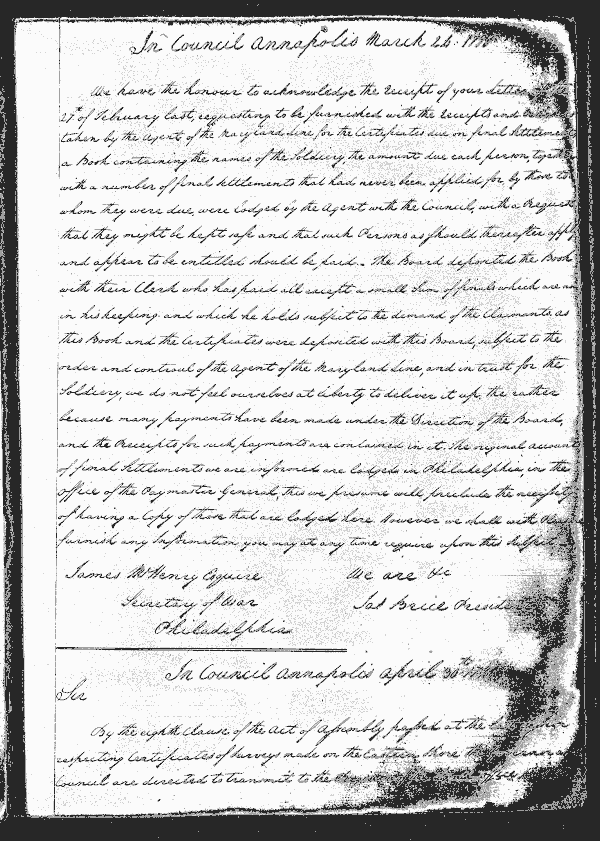 In Council Annapolis March 24. 17
We have the honour to acknowledge the receipt of your Letter
27th of February last, requesting to be furnished with the receipts and
taken by the Agent of the Maryland Line for the Certificates due on final Settlement
a Book containing the names of the Soldiery the amount due each person, together
with a number of final Settlements that had never been applied for by those to
whom they were due, were lodged by the Agent with the Council, with a Request
that they might be kept safe and that such Persons as should thereafter apply
and appear to be entitled should be paid. The Board deposited the Book
with their Clerk who has paid all except a small Sum of finals which are
in his keeping and which he holds subject to the demand of the Claimants. as
this Book and the Certificates were deposited with this Board, subject to the
order and controul of the Agent of the Maryland Line, and in trust for the
Soldiery, we do not feel ourselves at liberty to deliver it up, the rather
because many payments have been made under the Direction of the Board,
and the Receipts for such payments are contained in it. The original account
of final Settlements we are informed are lodged in Philadelphia, in the
Office of the Paymaster General, this we presume will preclude the necessity
of having a Copy of those that are lodged here However we shall with
furnish any Information you may at any time require upon this Subject
James McHenry Esquire We are &c
Secretary of War Jas Brice Presid
Philadelphia
In Council Annapolis April 30th 17
Sir
By the eighth Clause of the Act of Assembly passed at the
respecting Certificates of Surveys made on the Eastern Shore the
Council are directed to transmit to the